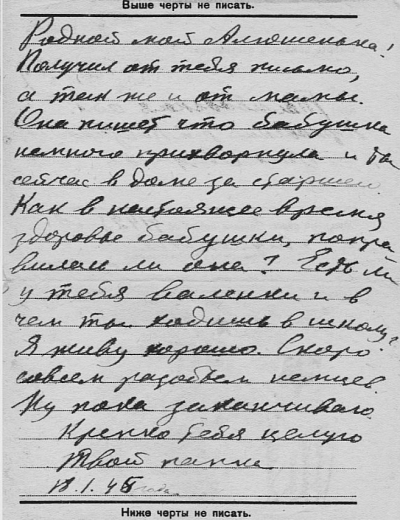 Выше черты не писать.
Родной мой Алюшенька!
Получил от тебя письмо,
а так же и от мамы.
Она пишет что бабушка
немного прихворнула и ты
сейчас в доме за старшею.
Как в настоящее время
здоровье бабушки, попра
вилась ли она? Есть ли
у тебя валенки и в
чем ты ходишь в школу?
Я живу хорошо. Скоро
совсем разобьем немцев.
Ну пока заканчиваю.
Крепко тебя целую
Твой папка
18.1.45 года.
Ниже черты не писать.